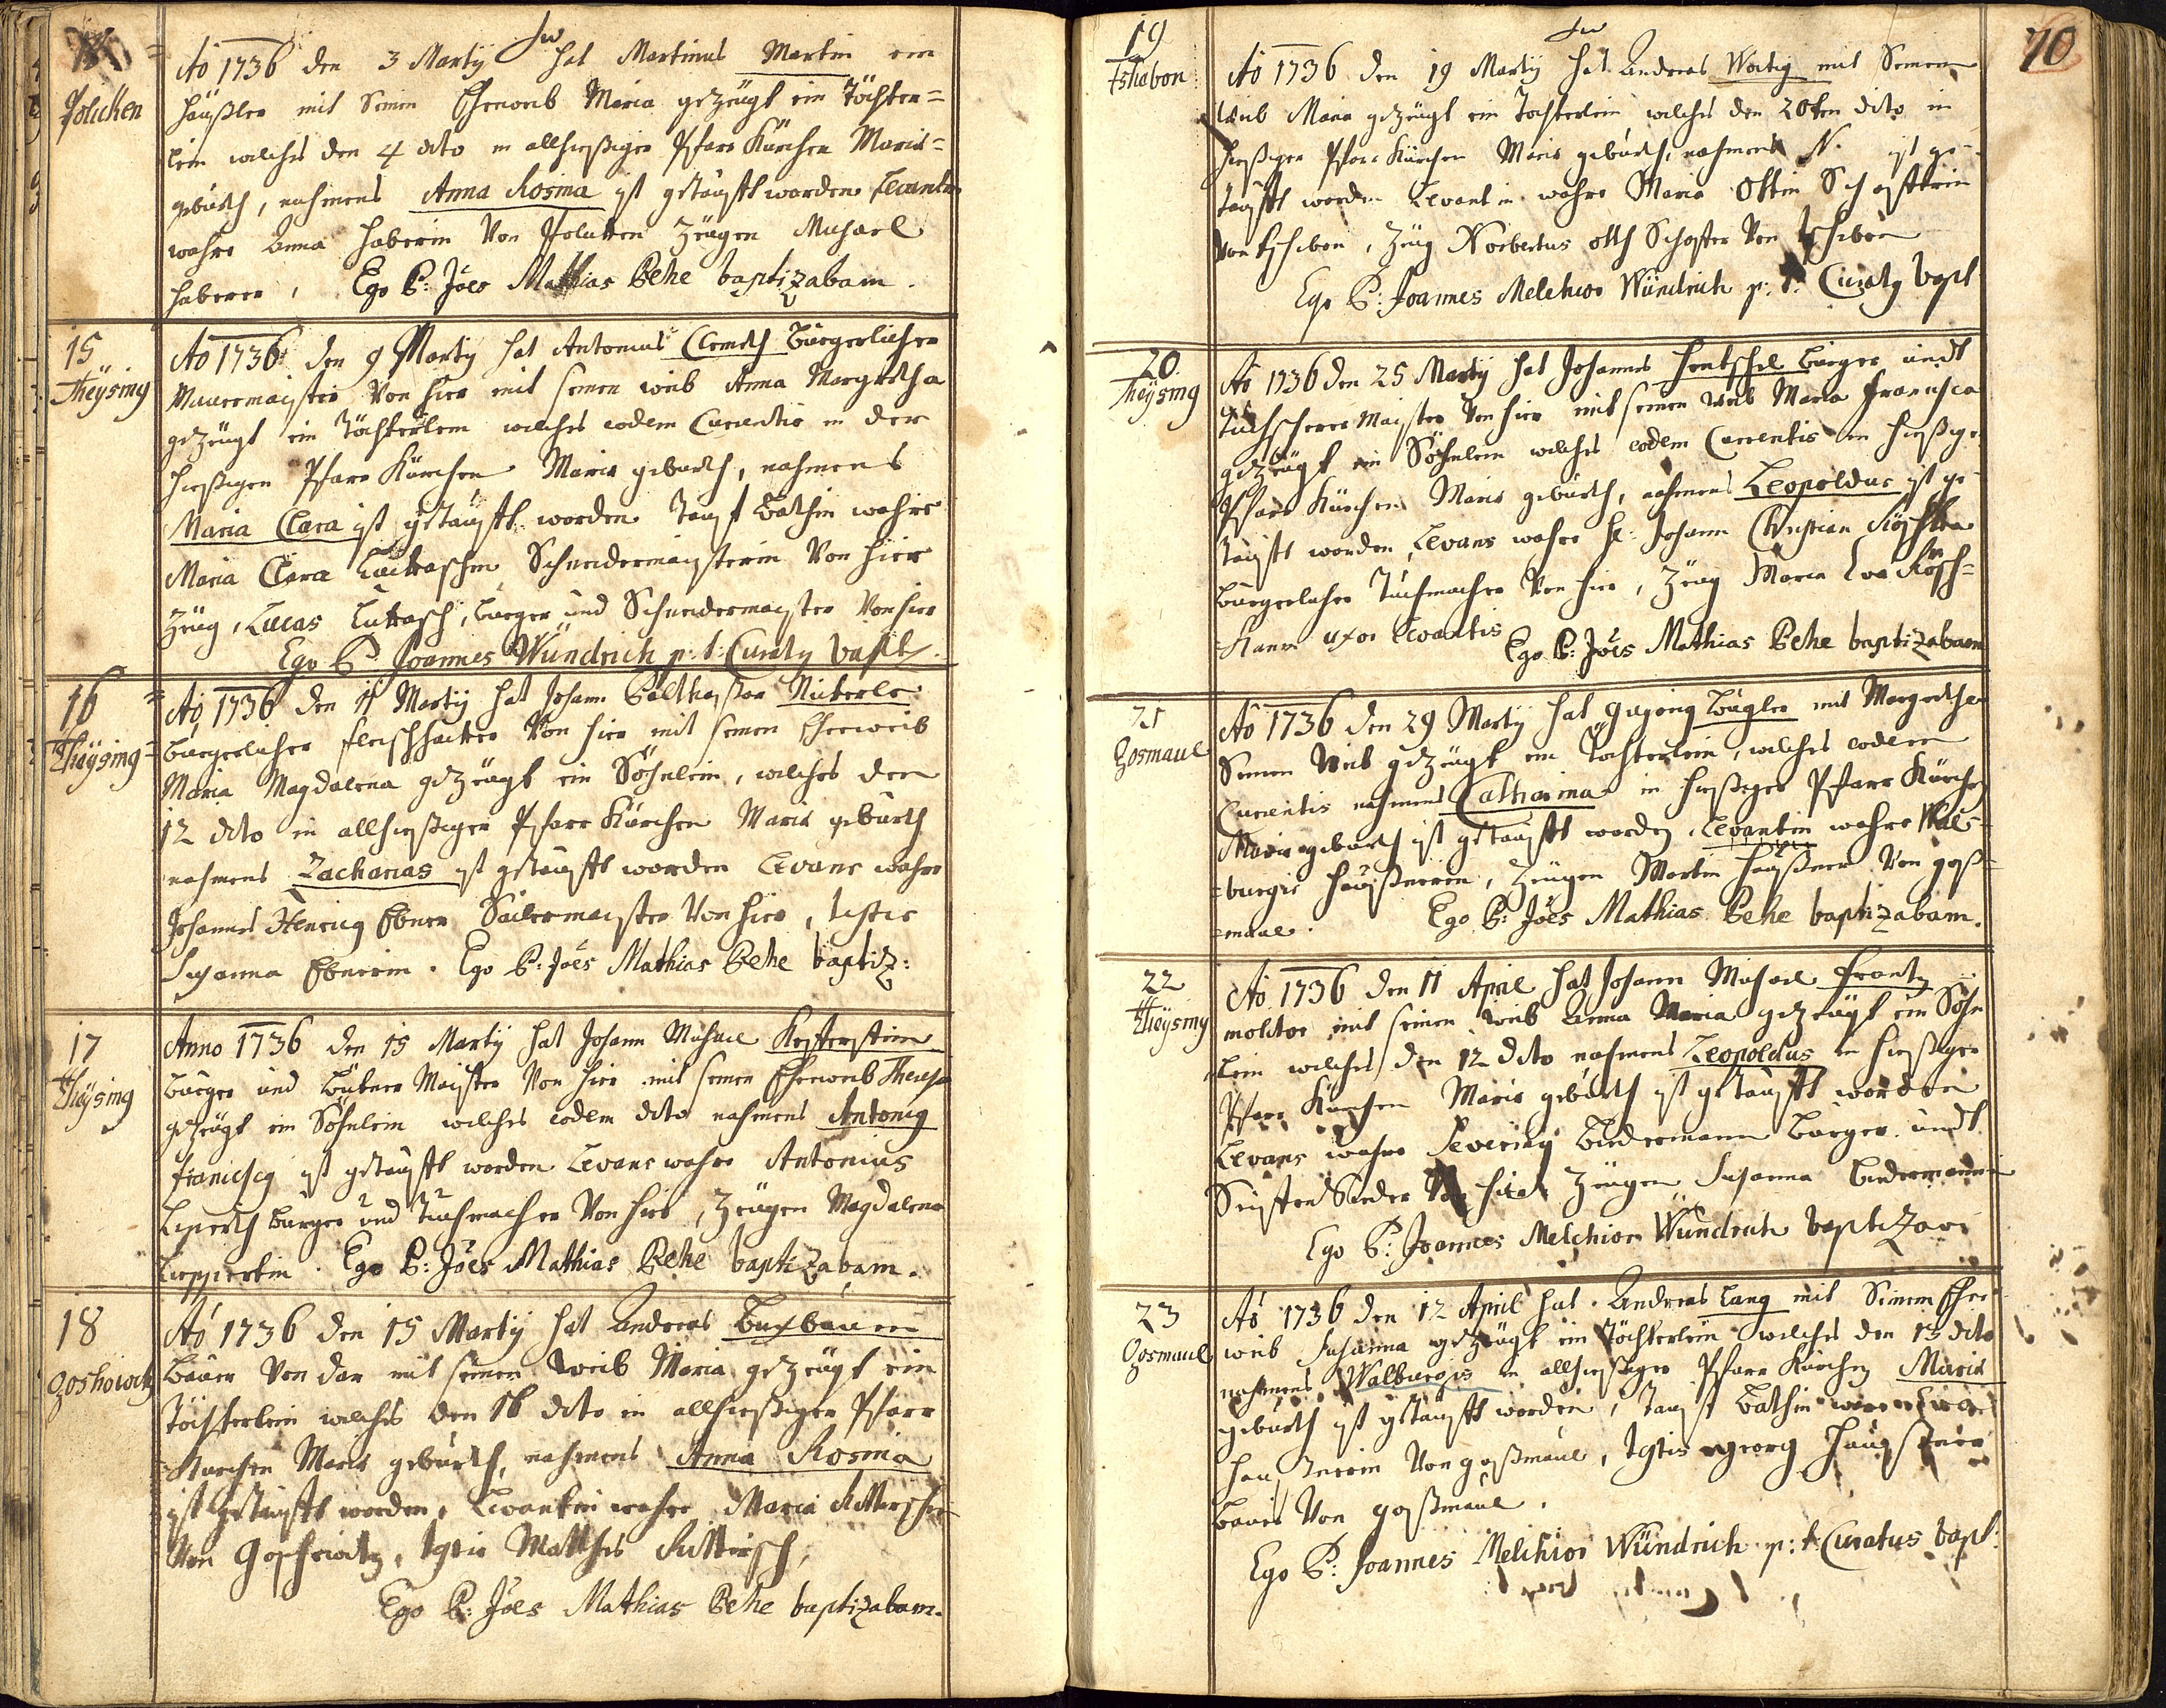 Policken
Aõ 1736 den 3 Martÿ hat Martinus Martin ein
Häußler mit Seinen Eheweib Maria gezeügt ein Töchter=
lein welches den 4 dito in allhießiger Pfarr Kürchen Mariæ=
geburth, nahmens Anna Rosina ist getaufft worden Levantin
wahre Anna Haberin Von Zeugen Michael
Haberer, Ego P: Jões Mathias Behe baptizabam.
15
Theÿsing
Aõ 1736 den 9 Martÿ hat Antonius Clemeth Bürgerlicher
Mauermaister Von hier mit seinen weib Anna Margretha
gezeügt ein Töchterlein welches eodem Currentis in der
hießigen Pfarr Kürchen Mariæ geburth, nahmens
Maria Clara ist getaufft worden Tauf Bathin wahre
Maria Clara Schneidermaisterin Von hier
Zeug, Lucas Luttasch, burger und Schneidermaister Von hier
Ego P. Joannes Wündrich p: t: Curatg bapt.
16
Theÿsing
Aõ 1736 den 11 Martÿ hat Johann Balthaßar Nickerle
bürgerlicher fleischhacker Von hier mit seinen Eheweib
Maria Magdalena gezeügt ein Söhnlein, welches den
12 dito in allhießiger Pfarr Kürchen Mariæ geburth
nahmens Zacharias ist getaufft worden Levans wahre
Johannes Henricg Ebner Sailermaister Von hier, testis
Susanna Ebnerin. Ego P: Jões Mathias Behe baptiz:
17
Theÿsing
Anno 1736 den 15 Martÿ hat Johann Michael Kesterstein
burger und Maister Von hier mit seinen Eheweib Theresia
gezeügt ein Söhnlein welches eodem dito nahmens Antonig
franciscg ist getaufft worden Levans wahre Antonius
burger und Tuchmacher Von hier, Zeugen Magdalena
Lieppertin. Ego P: Jões Mathias Behe baptizabam.
18
Goshowitz
Aõ 1736 den 15 Martÿ hat Andreas Buxbaum
Bauer Von dar mit seinen Weib Maria gezeügt ein
Töchterlein welches den 16 dito in allhießiger Pfarr
Kurchen Mariæ geburth, nahmens Anna Rosina
ist getaufft worden, Levantin wahre Maria
Von Goschowitz, tgtis Matthes
Ego P: Jões Mathias Behe baptizabam.
70
19
tshabon
Aõ 1736 den 19 Martÿ hat Andreas Woitg mit Seinen
Weib Maria gezeügt ein Tochterlein welches den 20ten dito in
hießigen Pfarr Kürchen Mariæ geburth, nahmens N. ist ge-
taufft worden Levantin wahre Maria Ottin
Von tschebon, Zeug Norbertus Von tschebon
Ego P: Joannes Melchior Wündrich p: t: Curatg bapt
20
Theÿsing
Aõ 1736 den 25 Martÿ hat Johannes Hentschel burger undt
Tuchscherer Maister Von hier mit seinen Weib Maria Francisca
gezeügt ein Söhnlein welches eodem Currentis in hießiger
Pfarr Kürchen Mariæ geburth, nahmens Leopoldus ist ge-
taufft worden, Levans wahre H: Johann Christian
bürgerlicher Tuchmacher Von hier, Zeug Maria Eva
uxor Levantis
Ego P: Jões Mathias Behe baptizabam
21
Gosmaul
Aõ 1736 den 29 Martÿ hat Bügler mit Margretha
Seinen Weib gezeügt ein Töchterlein, welches eodem
Currentis nahmens Catharina in hießiger Pfarr Kürchen
Mariæ geburth ist getaufft worden, Levantin wahre Wal=
=burgis Haußnerin, Zeugen Martin Haußner Von goß=
=maul. Ego P: Jões Mathias Behe baptizabam.
22
Theÿsing
Aõ 1736 den 11 April hat Johann Michael Frantz
molitor mit seinen Weib Anna Maria gezeügt ein Söhn
lein welches den 12 dito nahmens Leopoldus in hießiger
Pfarr Kürchen Mariæ geburth ist getaufft worden
Levans wahre Severing Biedermann Burger undt
Seiffen Sieder Von hier Zeugen Susanna Biedermannin
Ego P: Joannes Melchior Wündrich baptizavi
23
Gosmaul
Aõ 1736 den 12 April hat Andreas Lang mit Seinen Ehe
weib Susanna gezeügt ein Töchterlein welches den 13 dito
nahmens Walburgis in allhießiger Pfarr Kürchen Mariæ
geburth ist getaufft worden, Tauf Bathin
Haußnerin Von goßmaul, tgtis georg Haußner
bauer Von goßmaul.
Ego P: Joannes Melchior Wündrich p: t: Curatus bapt: